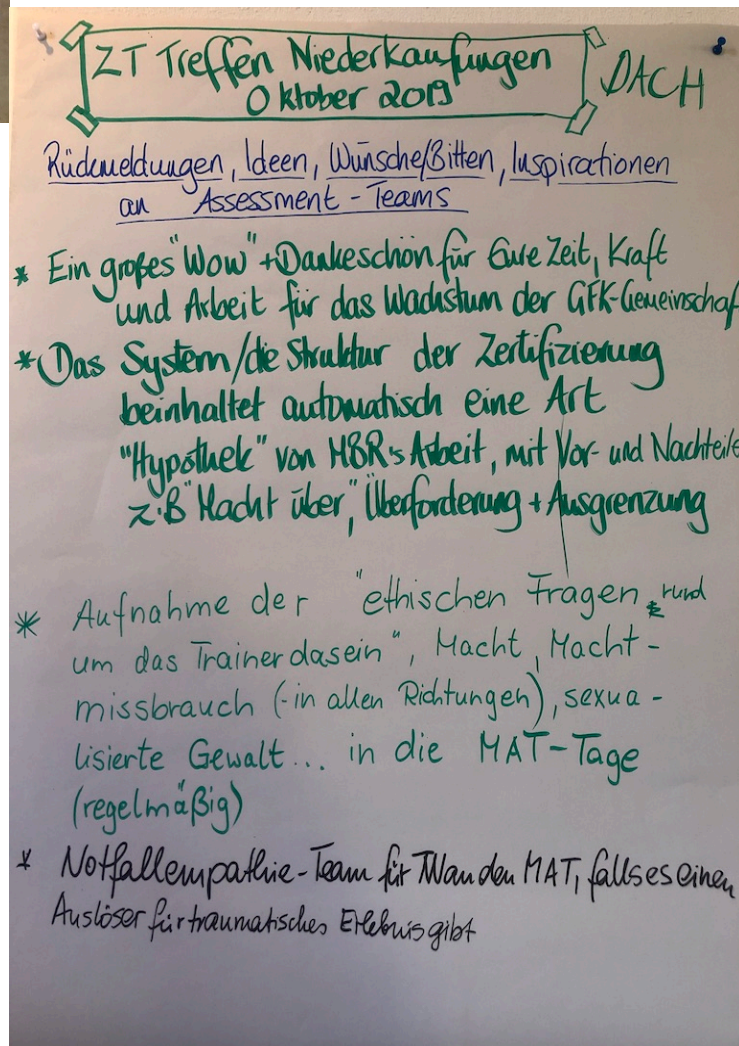 ZT Treffen Niederkaufungen
Oktober 2019
DACH
Rückmeldungen, Ideen, Wünsche/Bitten, Inspirationen
an Assessment-Teams
* Ein großes "Wow" + Dankeschön für Eure Zeit, Kraft
und Arbeit für das Wachstum der GFK-Gemeinschaf
* Das System/die Struktur der Zertifizierung
beinhaltet automatisch eine Art
"Hypothek" von MBR's Arbeit, mit Vor- und Nachteile
z.B "Macht über", Überforderung + Ausgrenzung
* Aufnahme der "ethischen Fragen rund
um das Trainerdasein", Macht, Macht-
missbrauch (-in allen Richtungen), sexua-
lisierte Gewalt... in die MAT-Tage
(regelmäßig)
* Notfallempathie-Team für TN an den MAT, falls es einen
Auslöser für traumatisches Erlebnis gibt